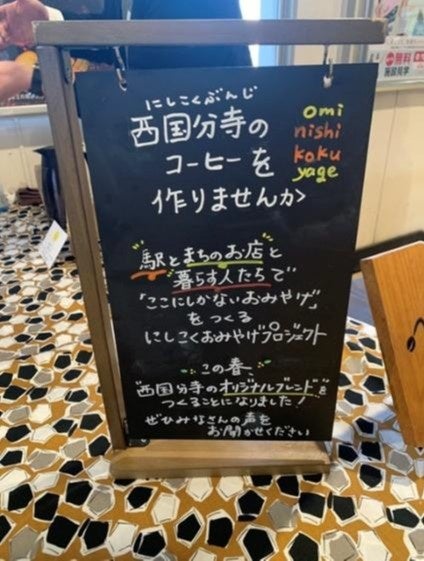 にしこくぶんじ
西国分寺の
コーヒーを
作りませんか
omi
nishi
koku
yage
駅とまちのお店と
暮らす人たちで
「ここにしかないおみやげ」
をつくる
にしこくおみやげプロジェクト
この春
"西国分寺のオリジナルブレンド"を
つくることになりました!
ぜひみなさんの声を
お聞かせください
無料
施設見学